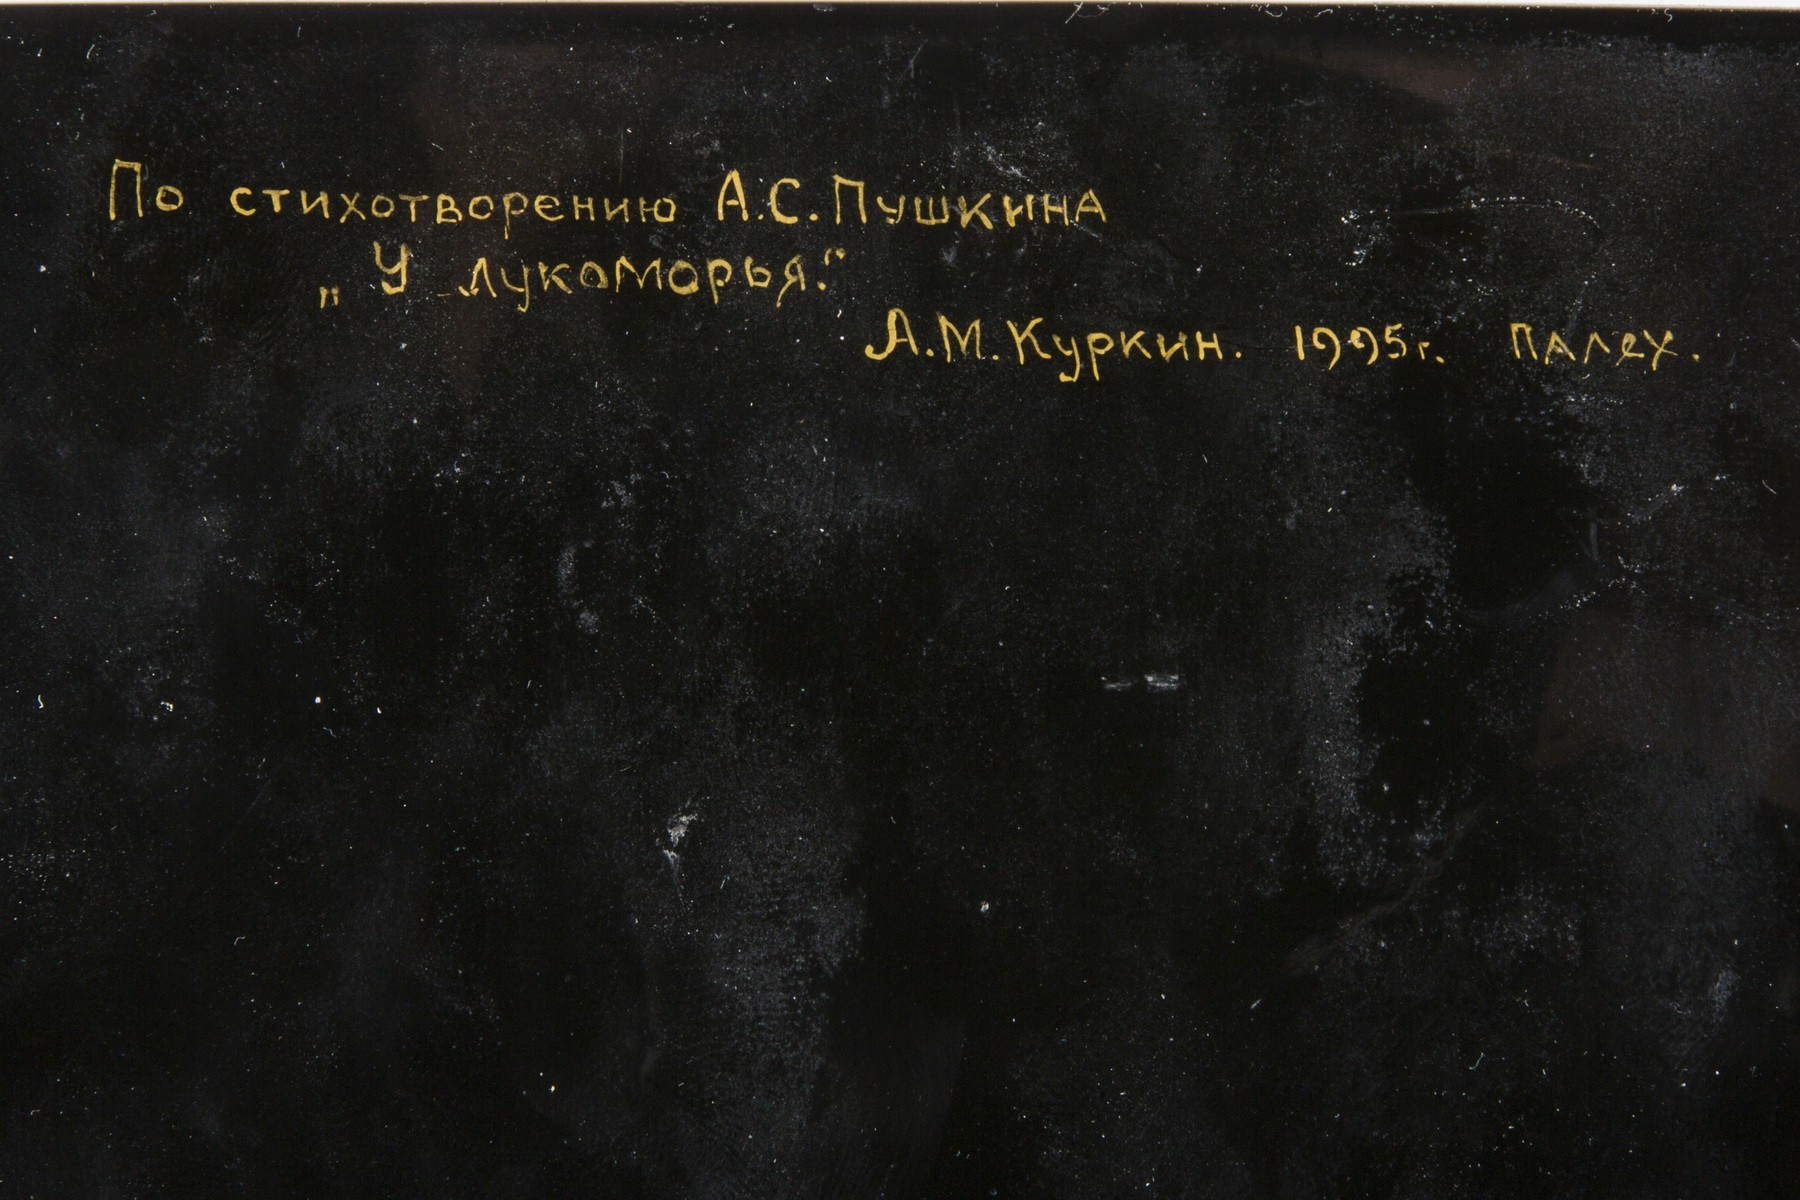 По стихотворению А.С.Пушкина
„У лукоморья.“
А.М.Куркин. 1995г. Палех.